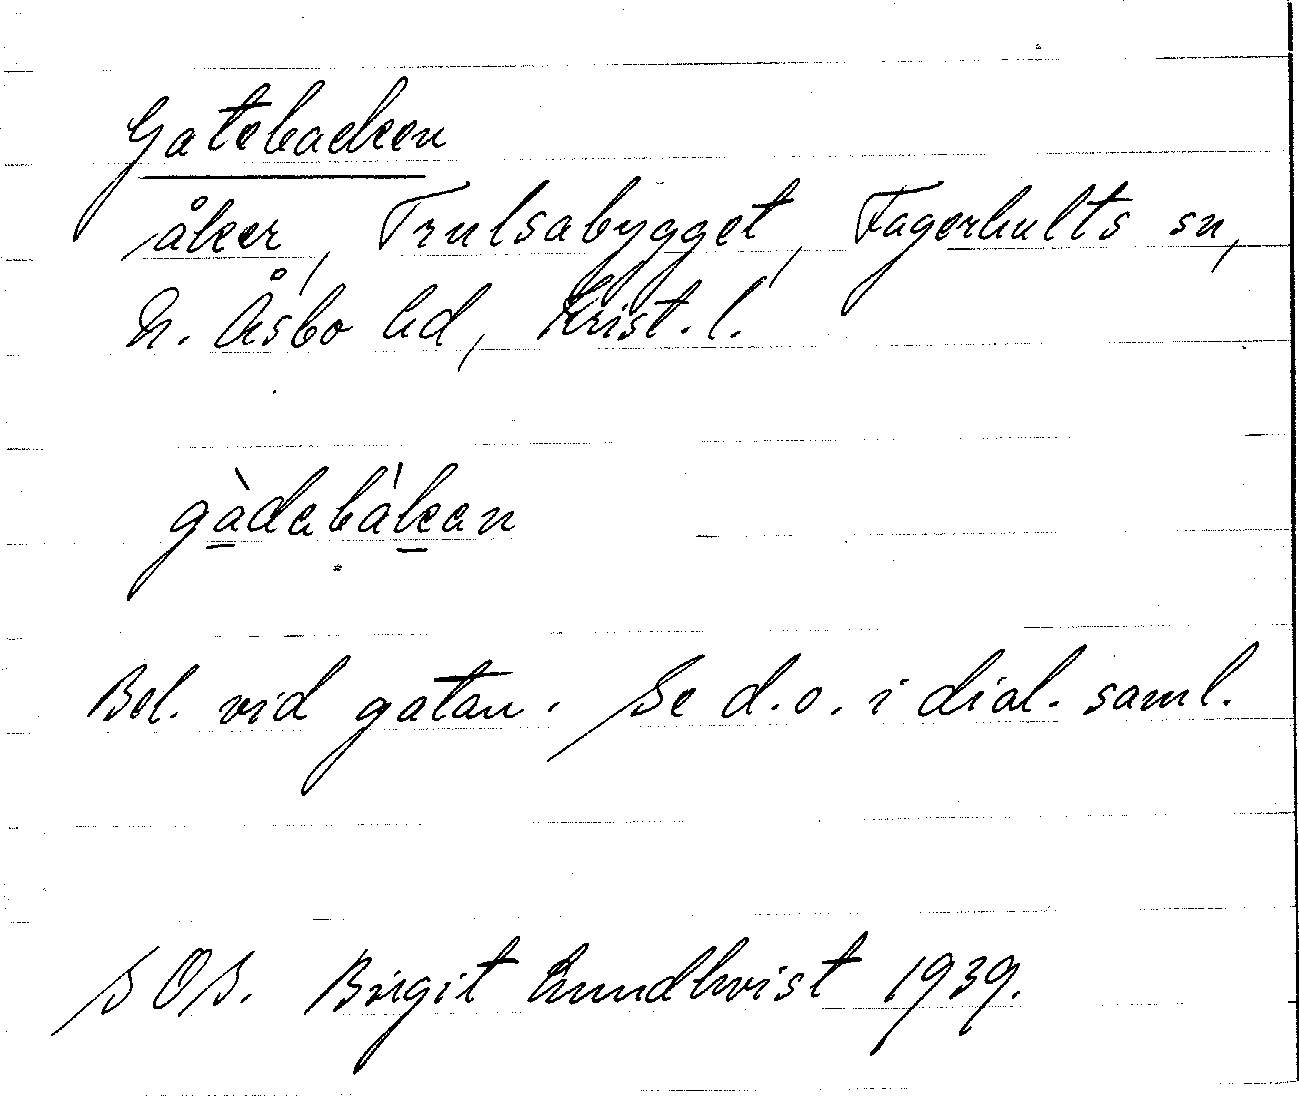 Gatebacken
åker, Trulsabygget, Fagerhults sn,
N. Åsbo hd, Krist. l.
gàdebàkan
Bel. vid gatan. Se d.o. i dial. saml.
SOS. Birgit Lundkvist 1939.